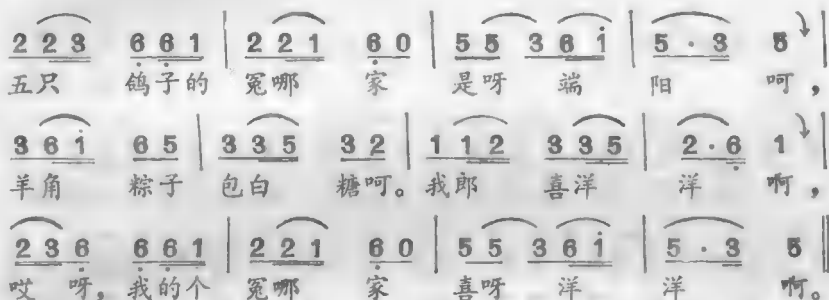 2 2 3 6 6 1 | 2 2 1 6 0 | 5 5 3 6 i | 5 · 3 5 |
五只 鸽子的 冤哪 家 是呀 端 阳 呵，
3 6 i 6 5 | 3 3 5 3 2 | 1 1 2 3 3 5 | 2 · 6 1 |
羊角 粽子 包白 糖呵。我郎 喜洋 洋 啊，
2 3 6 6 6 1 | 2 2 1 6 0 | 5 5 3 6 i | 5 · 3 5 ‖
哎 呀，我的个 冤哪 家 喜呀 洋 洋 啊。